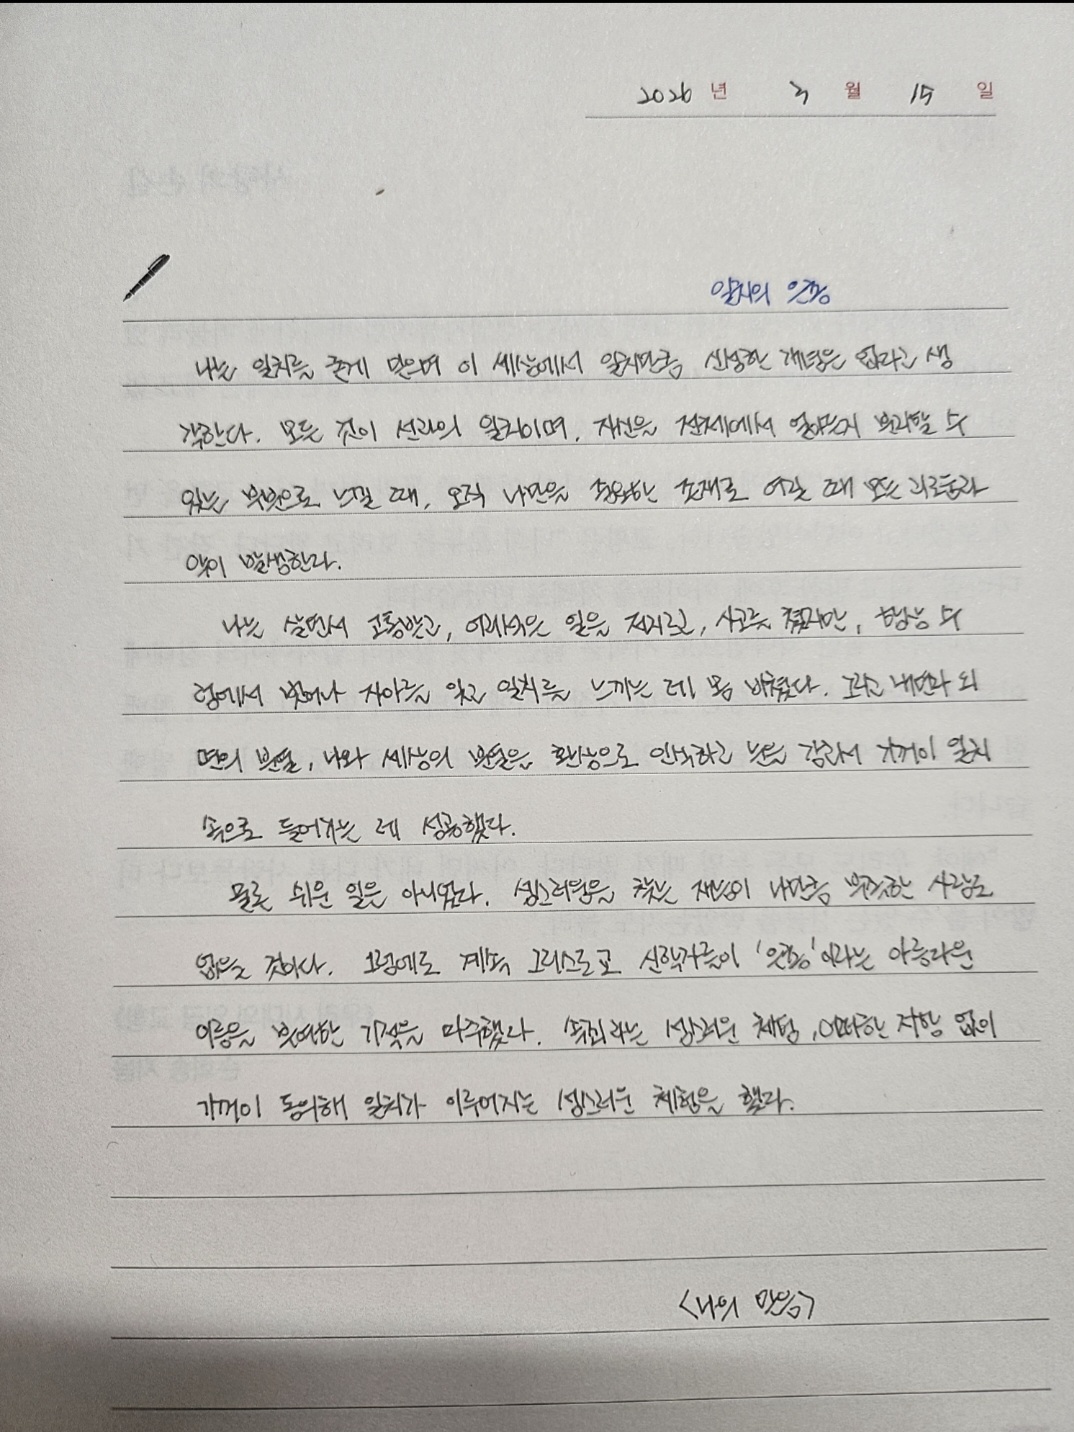 2026 년 3 월 15 일
일치의 은총
나는 일치를 굳게 믿으며 이 세상에서 일치만큼 신성한 개념은 없다고 생
각한다. 모든 것이 선과의 일치이며, 자신을 전체에서 얼마든지 분리할 수
있는 부분으로 느낄 때, 오직 나만을 중요한 존재로 여길 때 모든 괴로움과
악이 발생한다.
나는 살면서 고통받고, 어리석은 일을 저지르고, 사고를 쳤지만, 항상 수
렁에서 벗어나 자아를 잊고 일치를 느끼는 데 몸 바쳤다. 그리고 내면과 외
면의 분열, 나와 세상의 분열은 환상으로 인식하고 눈을 감아서 기꺼이 일치
속으로 들어가는 데 성공했다.
물론 쉬운 일은 아니었다. 성스러움을 찾는 재능이 나만큼 부족한 사람도
없을 것이다. 그럼에도 계속 그리스도교 신학자들이 '은총'이라는 아름다운
이름을 부여한 기적을 마주했다. 속죄라는 성스러운 체험, 어떠한 저항 없이
기꺼이 동의해 일치가 이루어지는 성스러운 체험을 했다.
<나의 믿음>